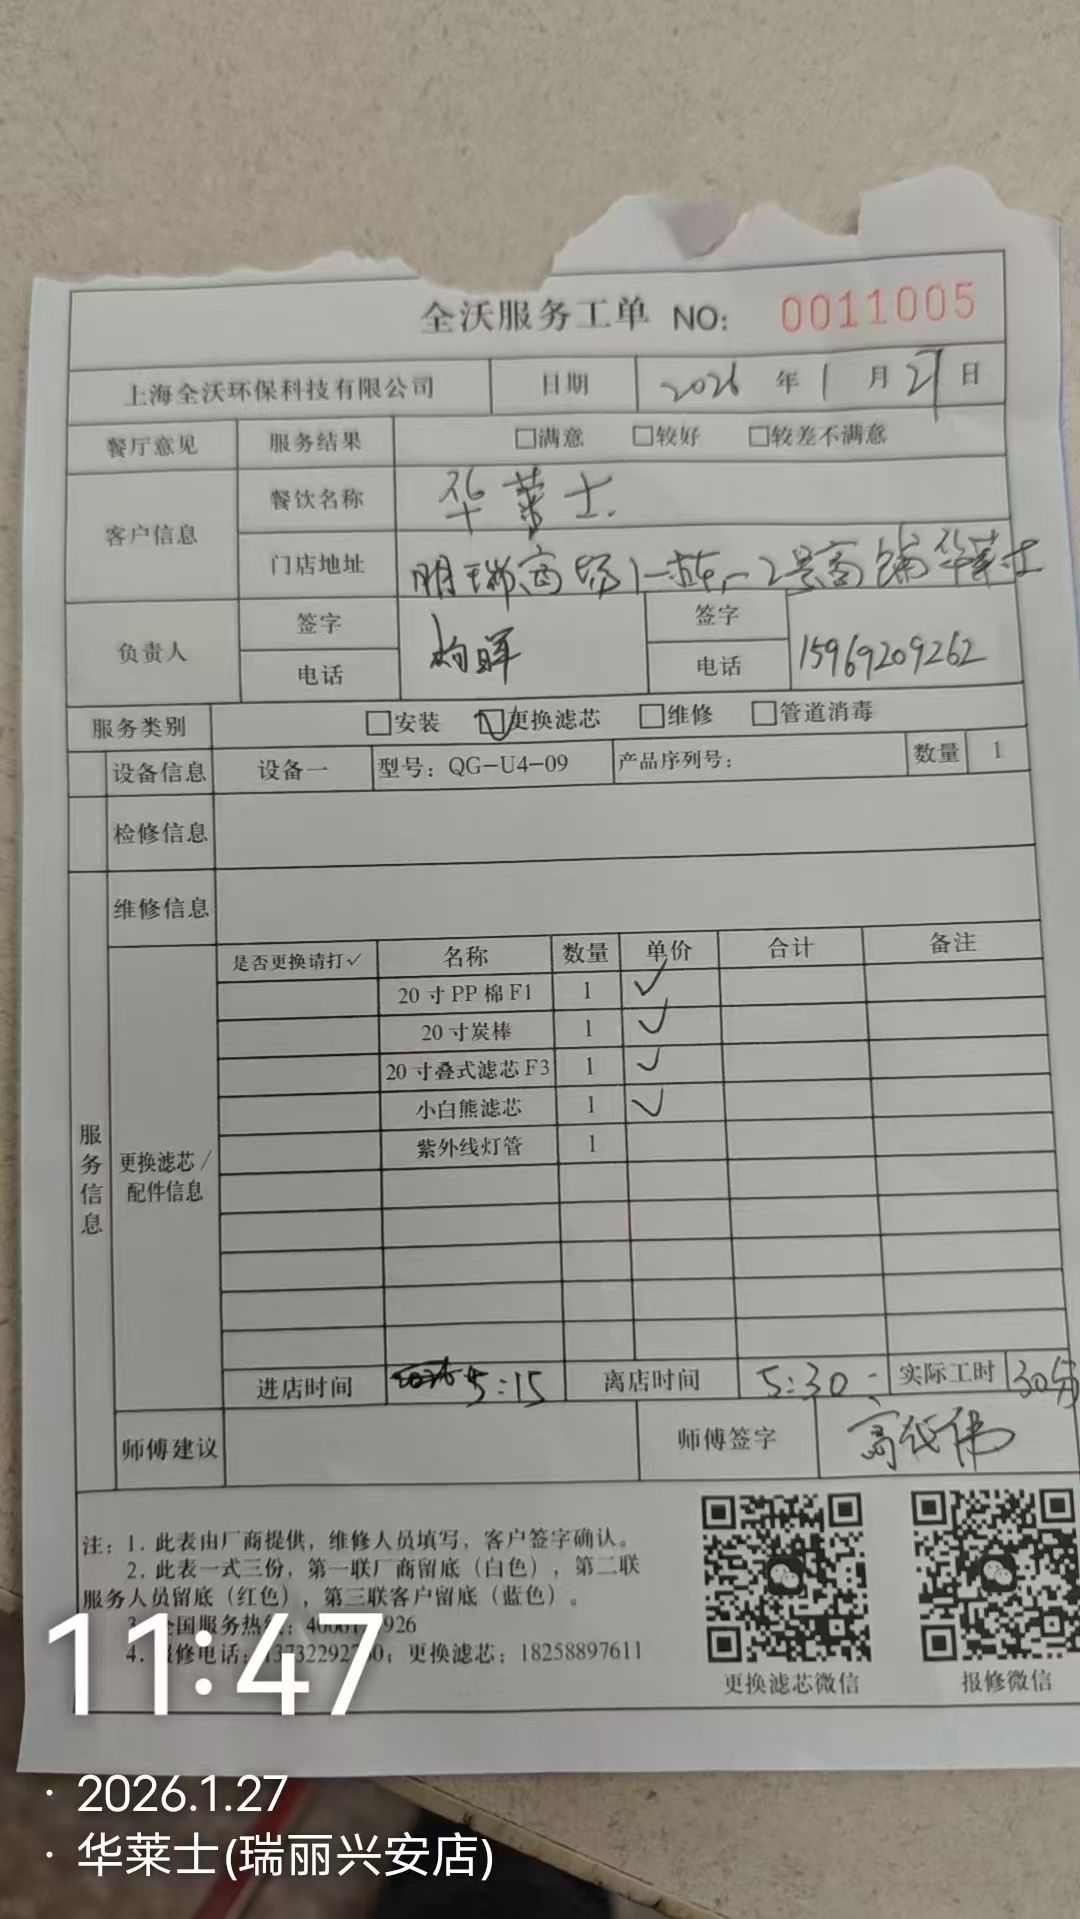 全沃服务工单 NO: 0011005
上海全沃环保科技有限公司 日期 2026 年 1 月 27 日
餐厅意见 服务结果 □满意 □较好 □较差不满意
客户信息 餐饮名称 华莱士
门店地址 明瑞商场1一栋-2号商铺华莱士
负责人 签字 签字
电话 电话 15969209262
服务类别 □安装 ☑更换滤芯 □维修 □管道消毒
设备信息 设备一 型号：QG-U4-09 产品序列号： 数量 1
检修信息
维修信息
服务信息 更换滤芯/配件信息
是否更换请打✓ 名称 数量 单价 合计 备注
20寸PP棉F1 1 ✓
20寸炭棒 1 ✓
20寸叠式滤芯F3 1 ✓
小白熊滤芯 1 ✓
紫外线灯管 1
进店时间 5:15 离店时间 5:30 实际工时 30分
师傅建议 师傅签字
注：1. 此表由厂商提供，维修人员填写，客户签字确认。
2. 此表一式三份，第一联厂商留底（白色），第二联
服务人员留底（红色），第三联客户留底（蓝色）。
全国服务热线：
修电话： 更换滤芯：18258897611
更换滤芯微信 报修微信
11:47
· 2026.1.27
· 华莱士(瑞丽兴安店)